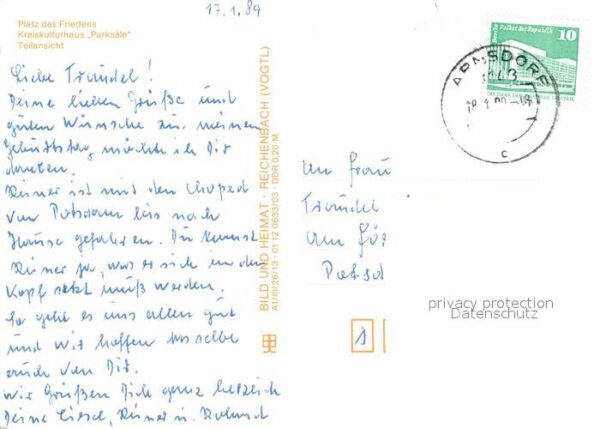 17.1.89
Platz des Friedens
Kreiskulturhaus „Parksäle"
Teilansicht
Liebe Traudel!
Deine lieben Grüße und
guten Wünsche zu meinem
Geburtstag möchte ich Dir
danken.
Rainer ist mit dem Moped
von Potsdam bis nach
Hause gefahren. Du kennst
Rainer ja, was er sich in den
Kopf setzt muß werden.
So geht es uns allen gut
und wir hoffen dasselbe
auch von Dir.
Wir Grüßen Dich ganz herzlich
Deine Liesel, Rainer u.
BILD UND HEIMAT · REICHENBACH (VOGTL)
A1/III/26/13 · 01 12 0633/03 · DDR 0,20 M
Berlin Palast der Republik
10
ARNSDORF
c
An Frau
Traudel
Am
Potsd
privacy protection
Datenschutz
1